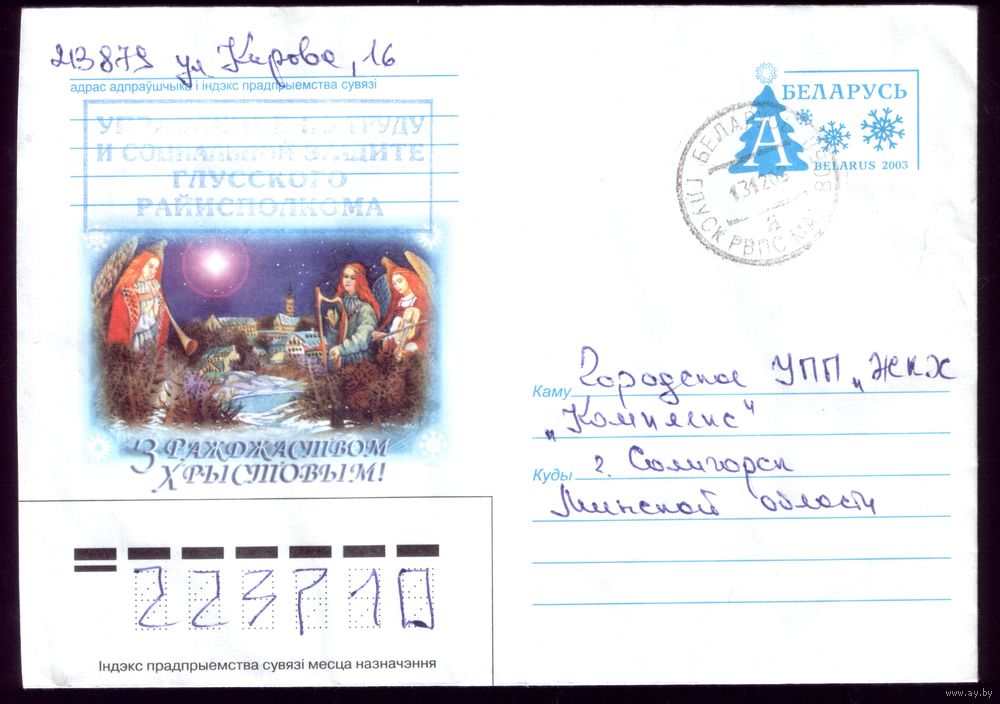 213879 ул Кирова, 16
адрас адпраўшчыка і індэкс прадпрыемства сувязі
УПРАВЛЕНИЕ ПО ТРУДУ
И СОЦИАЛЬНОЙ ЗАЩИТЕ
ГЛУССКОГО
РАЙИСПОЛКОМА
БЕЛАРУСЬ
А
BELARUS 2003
ГЛУСК РВПС
131203
а
З РАЖДЖАСТВОМ
ХРЫСТОВЫМ!
Каму Городское УПП „ЖКХ
„Комплекс"
Куды г. Солигорск
Минской области
223710
Індэкс прадпрыемства сувязі месца назначэння
www.ay.by